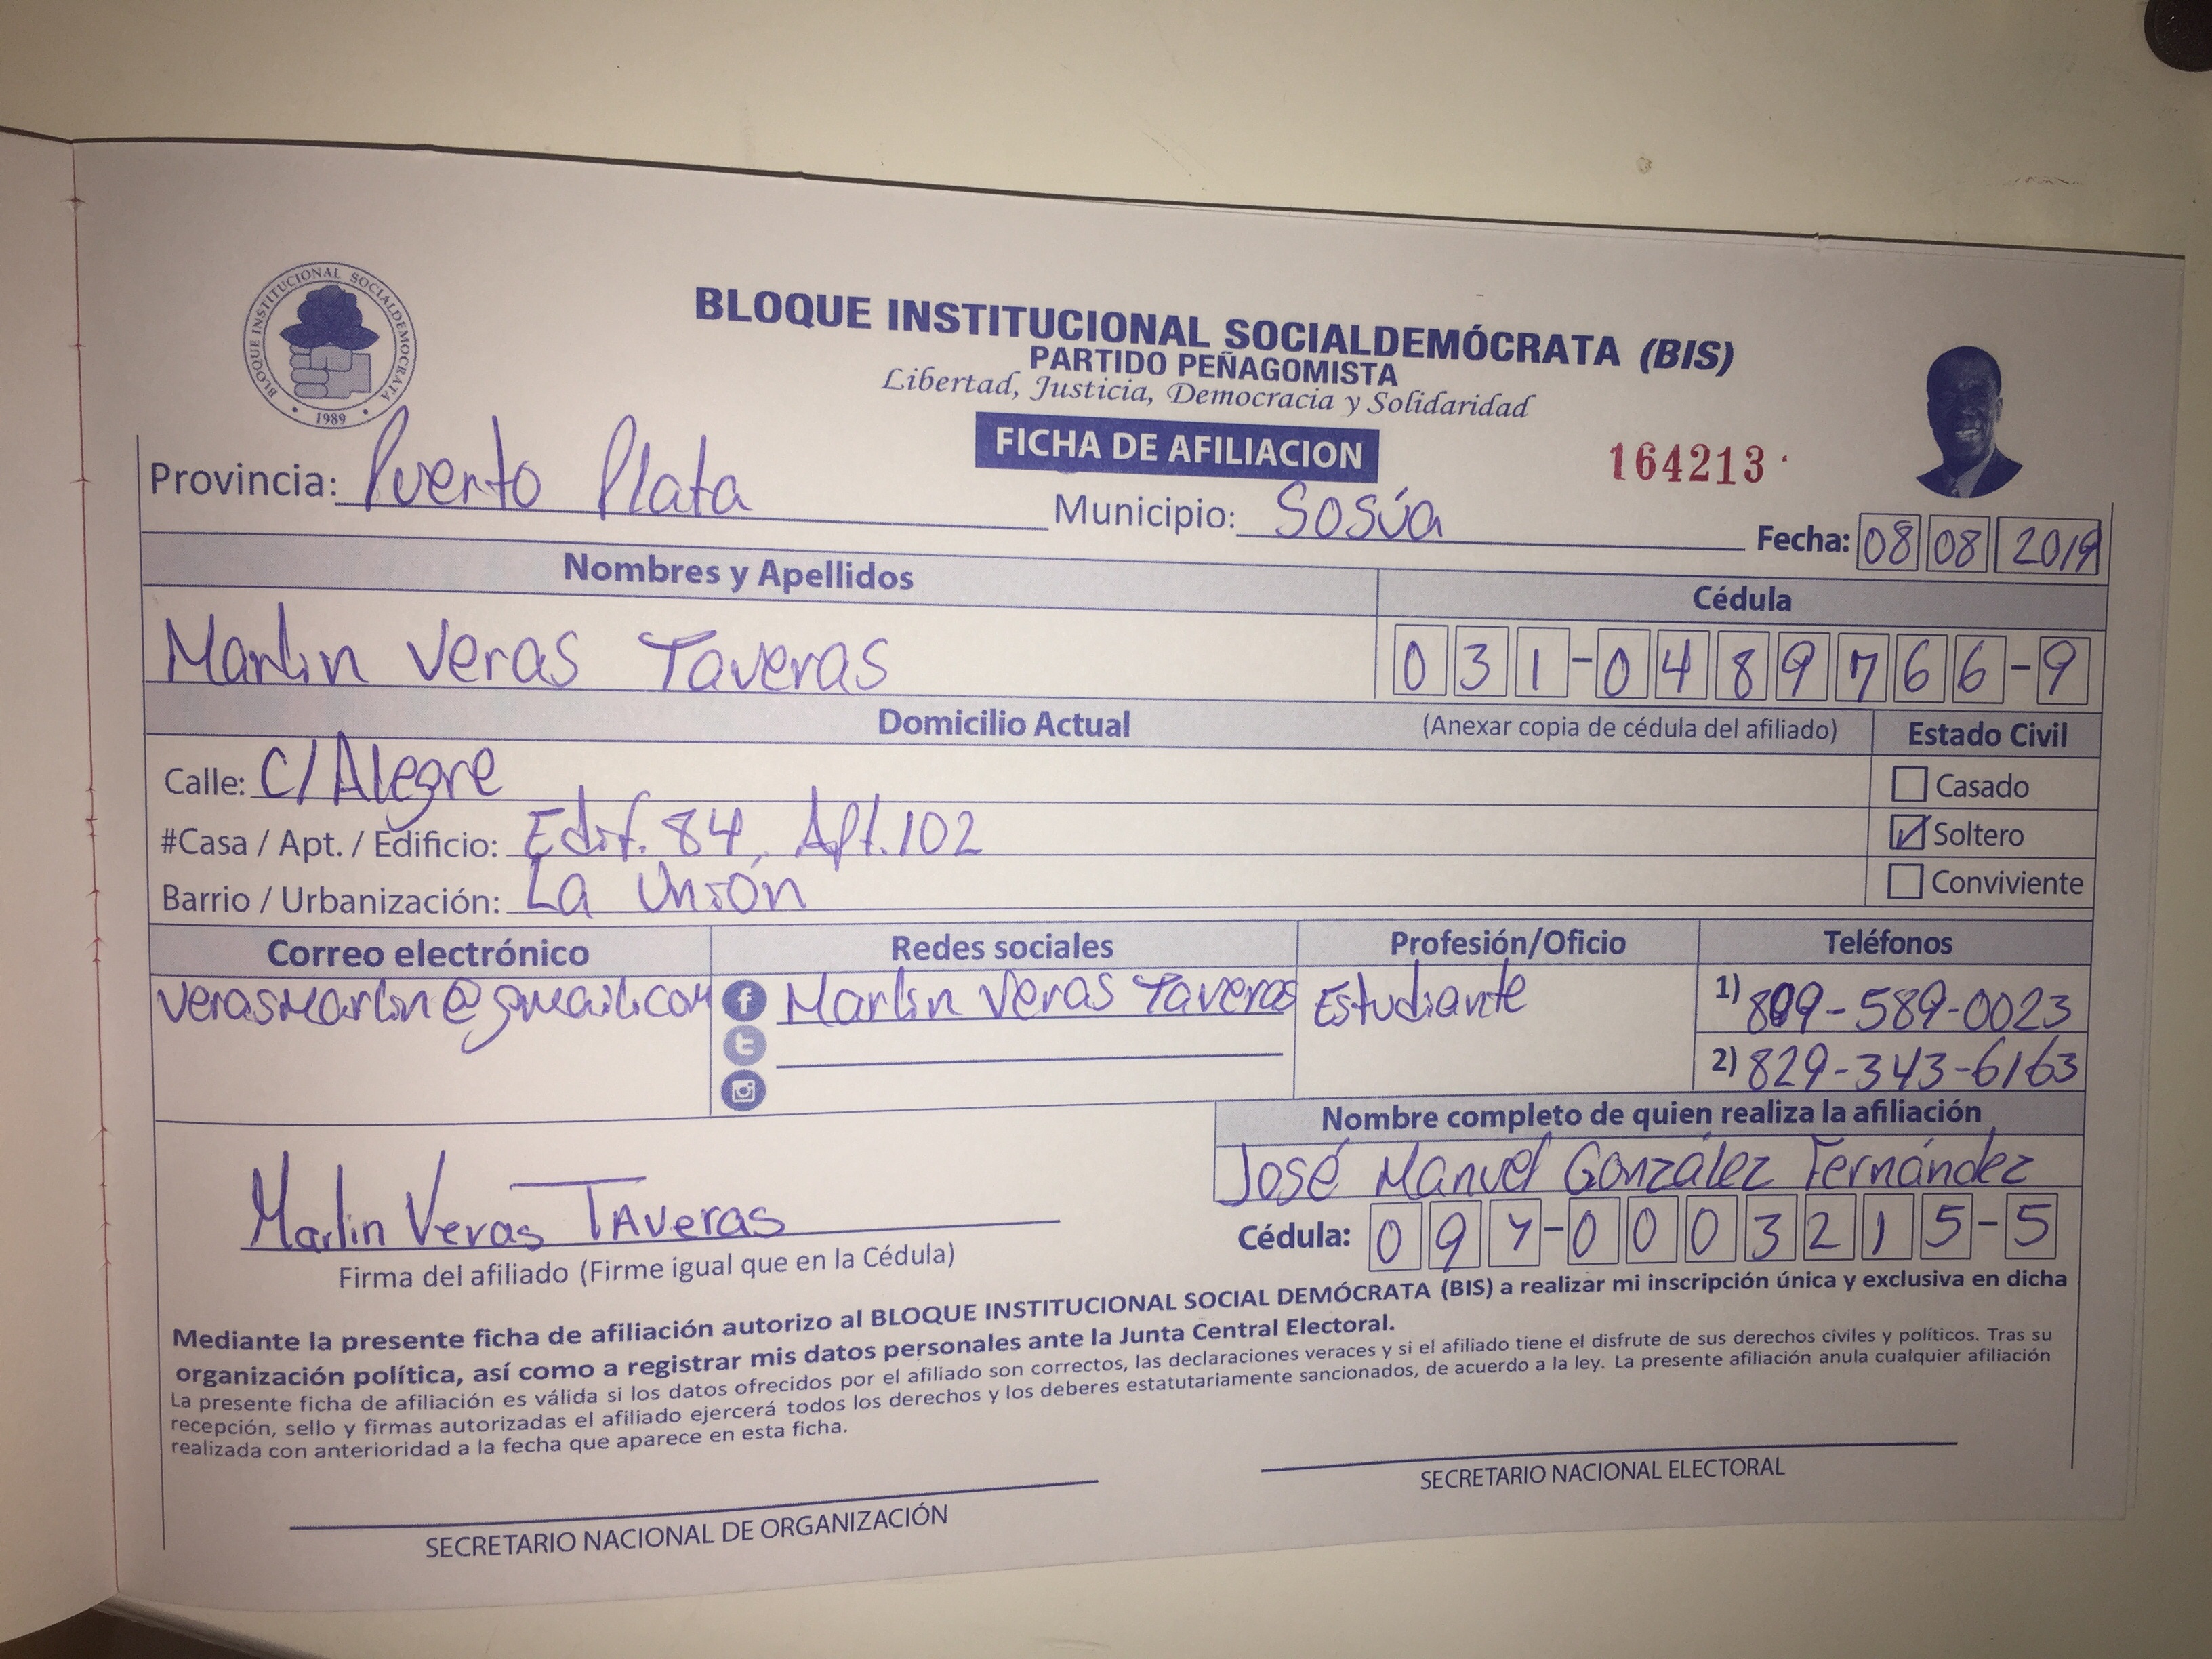 BLOQUE INSTITUCIONAL SOCIALDEMOCRATA
1989
BLOQUE INSTITUCIONAL SOCIALDEMÓCRATA (BIS)
PARTIDO PEÑAGOMISTA
Libertad, Justicia, Democracia y Solidaridad
FICHA DE AFILIACION
164213
Provincia: Puerto Plata Municipio: Sosúa Fecha: 08 08 2019
Nombres y Apellidos Cédula
Marlin Veras Taveras 031-0489766-9
Domicilio Actual (Anexar copia de cédula del afiliado) Estado Civil
Calle: C/Alegre Casado
#Casa / Apt. / Edificio: Edif. 84, Apt. 102 Soltero
Barrio / Urbanización: La Unión Conviviente
Correo electrónico Redes sociales Profesión/Oficio Teléfonos
verasmarlin@gmail.com Marlin Veras Taveras Estudiante 1) 809-589-0023
2) 829-343-6163
Nombre completo de quien realiza la afiliación
José Manuel González Fernández
Marlin Veras TAveras
Cédula: 097-0003215-5
Firma del afiliado (Firme igual que en la Cédula)
Mediante la presente ficha de afiliación autorizo al BLOQUE INSTITUCIONAL SOCIAL DEMÓCRATA (BIS) a realizar mi inscripción única y exclusiva en dicha
organización política, así como a registrar mis datos personales ante la Junta Central Electoral.
La presente ficha de afiliación es válida si los datos ofrecidos por el afiliado son correctos, las declaraciones veraces y si el afiliado tiene el disfrute de sus derechos civiles y políticos. Tras su
recepción, sello y firmas autorizadas el afiliado ejercerá todos los derechos y los deberes estatutariamente sancionados, de acuerdo a la ley. La presente afiliación anula cualquier afiliación
realizada con anterioridad a la fecha que aparece en esta ficha.
SECRETARIO NACIONAL DE ORGANIZACIÓN
SECRETARIO NACIONAL ELECTORAL